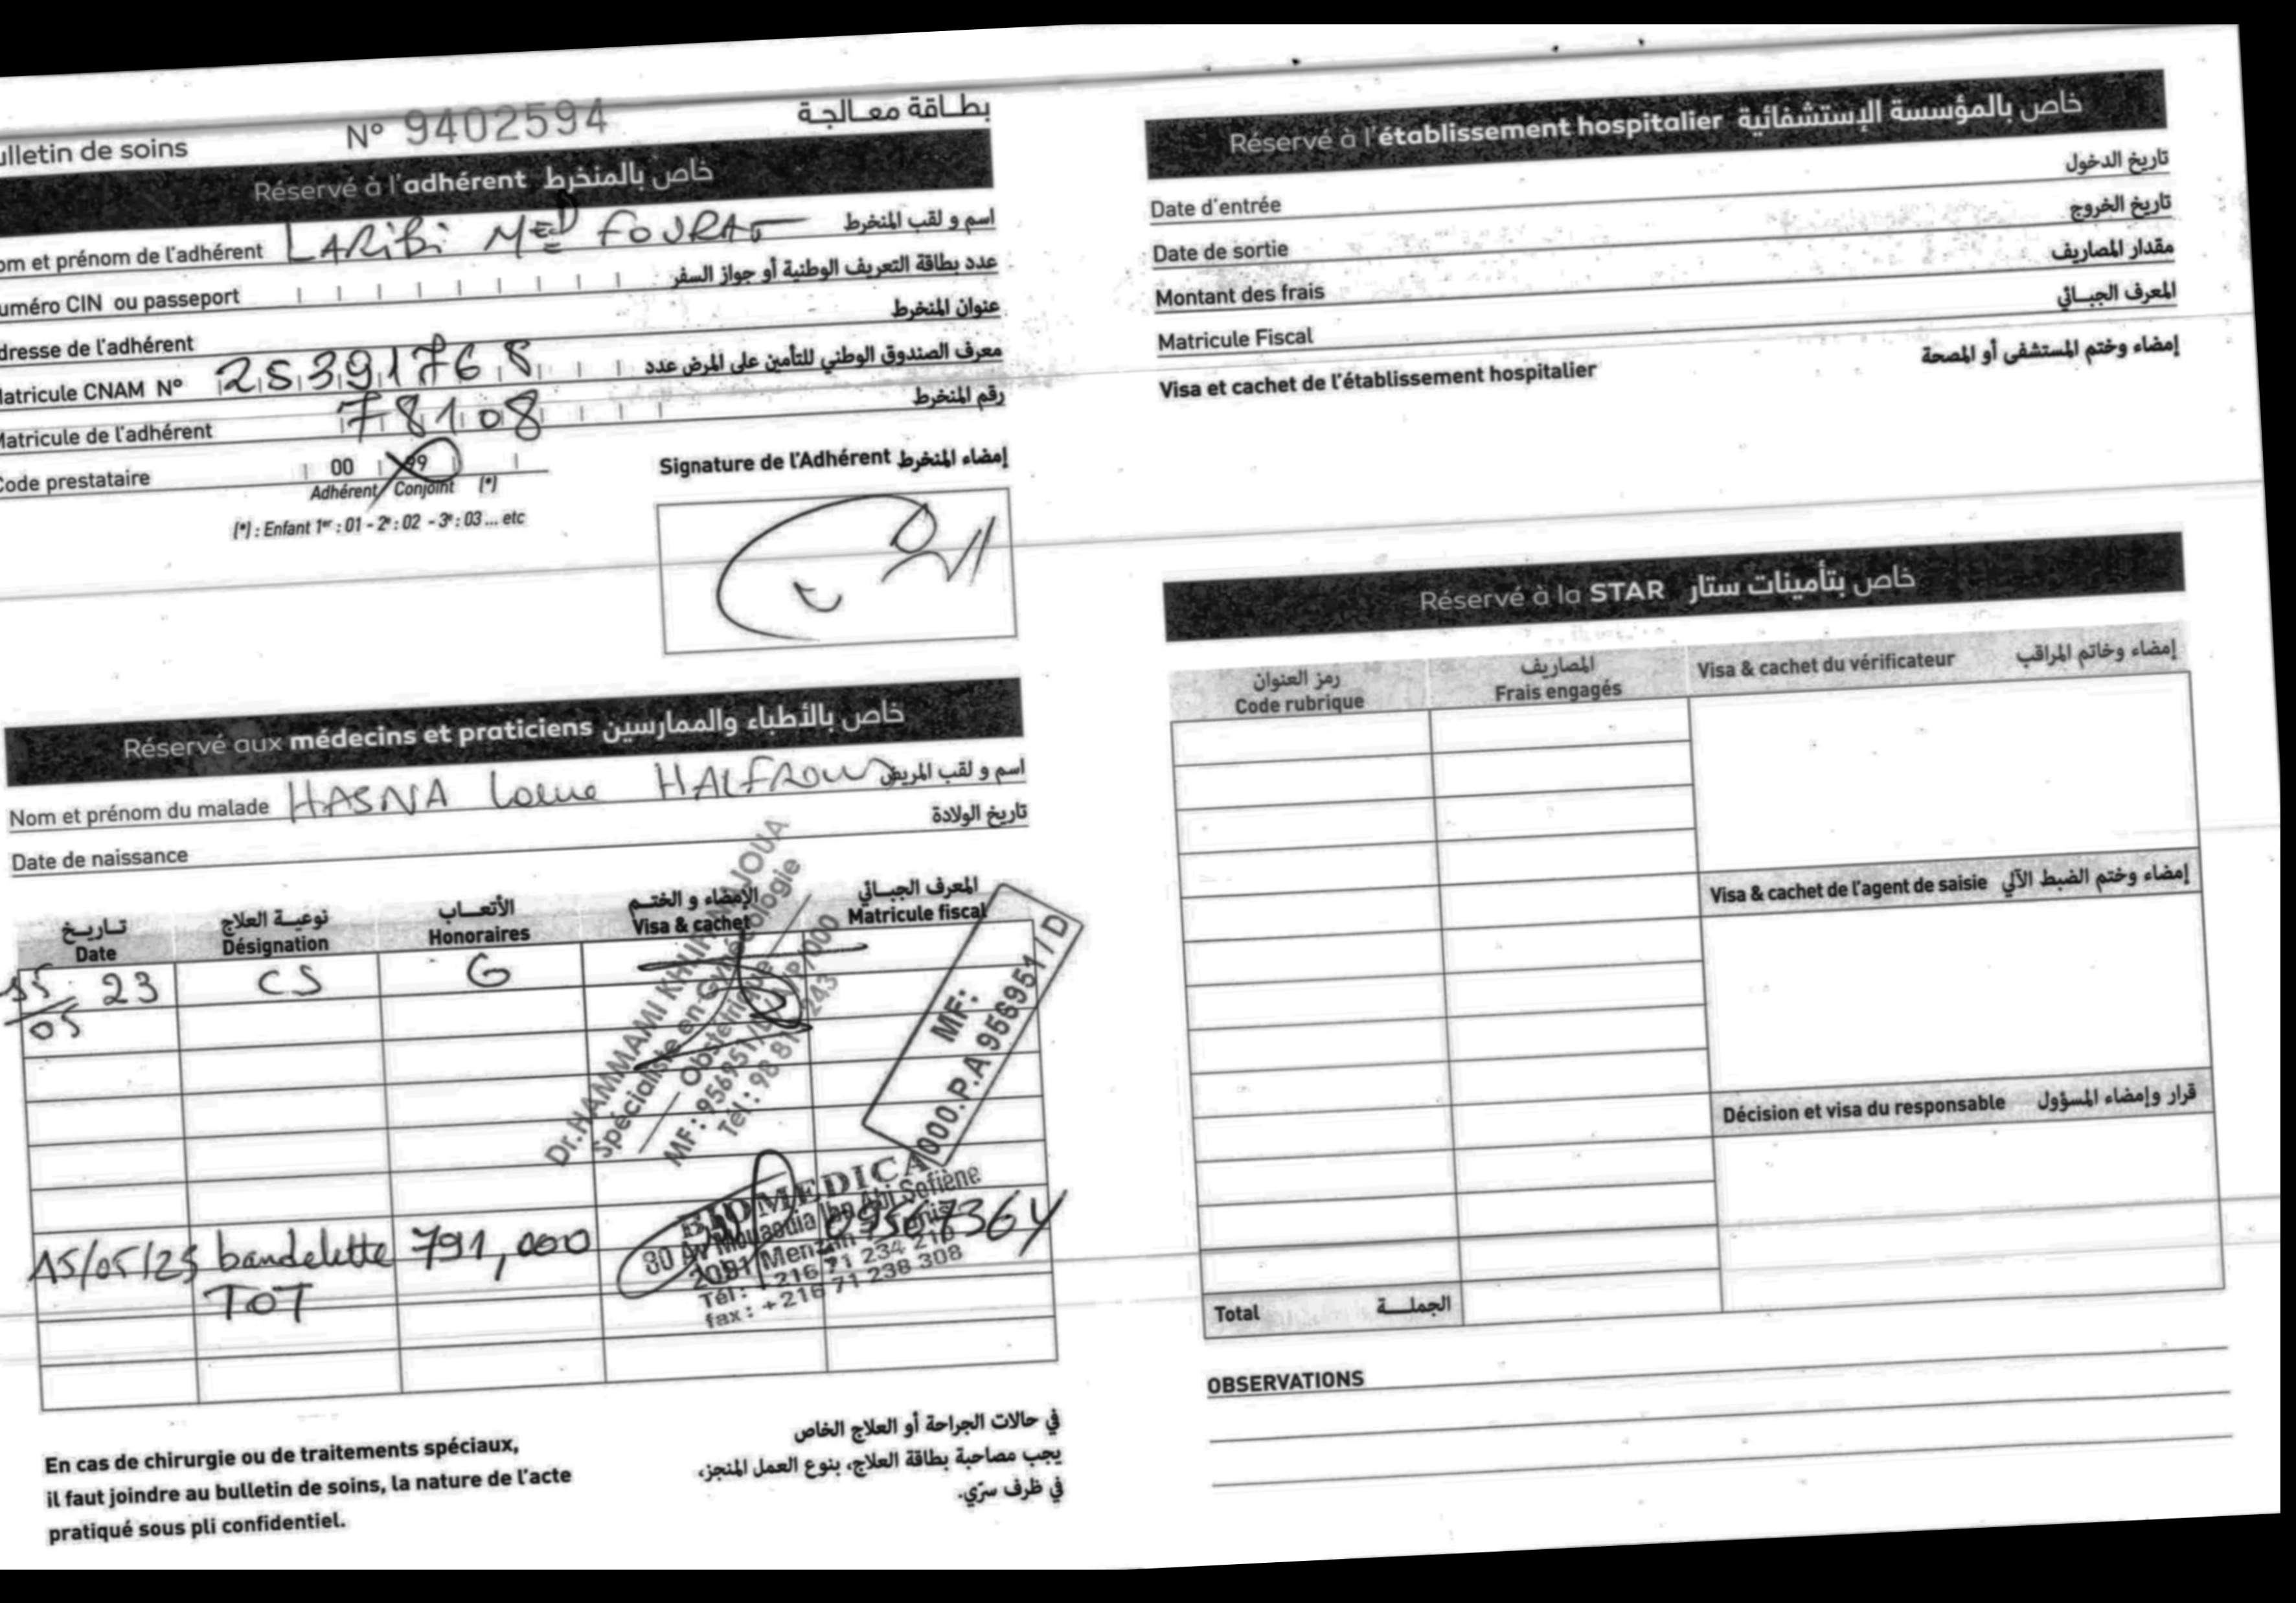 ulletin de soins N° 9402594 بطاقة معالجة
Réservé à l'adhérent خاص بالمنخرط
om et prénom de l'adhérent LARIBI MED FOURAT اسم و لقب المنخرط
uméro CIN ou passeport عدد بطاقة التعريف الوطنية أو جواز السفر
dresse de l'adhérent عنوان المنخرط
Matricule CNAM N° 25391768 معرف الصندوق الوطني للتأمين على المرض عدد
Matricule de l'adhérent 78108 رقم المنخرط
Code prestataire 00 99
Adhérent Conjoint (*)
(*) : Enfant 1er : 01 - 2e : 02 - 3e : 03 ... etc
Signature de l'Adhérent إمضاء المنخرط
Réservé aux médecins et praticiens خاص بالأطباء والممارسين
Nom et prénom du malade HASNA HALFAOUI اسم و لقب المريض
Date de naissance تاريخ الولادة
تاريخ نوعية العلاج الأتعاب الإمضاء و الختم المعرف الجبائي
Date Désignation Honoraires Visa & cachet Matricule fiscal
15/05 23 CS G
Dr.HAMMAMI
Spécialiste en Gynécologie
Obstétrique
MF: 956951/
Tél : 98 81 243
MF:
000.P.A 956951 / D
15/05/23 bandelette 791,000 0956736Y
TOT
BIOMEDICA
80 Av Mouaouia Ibn Abi Sofiène
2091 Menzah
Tél : +216 71 234 210
fax : +216 71 238 308
En cas de chirurgie ou de traitements spéciaux,
il faut joindre au bulletin de soins, la nature de l'acte
pratiqué sous pli confidentiel.
في حالات الجراحة أو العلاج الخاص
يجب مصاحبة بطاقة العلاج، بنوع العمل المنجز،
في ظرف سرّي.
Réservé à l'établissement hospitalier خاص بالمؤسسة الإستشفائية
Date d'entrée تاريخ الدخول
Date de sortie تاريخ الخروج
Montant des frais مقدار المصاريف
Matricule Fiscal المعرف الجبائي
Visa et cachet de l'établissement hospitalier إمضاء وختم المستشفى أو المصحة
Réservé à la STAR خاص بتأمينات ستار
رمز العنوان المصاريف
Code rubrique Frais engagés Visa & cachet du vérificateur إمضاء وخاتم المراقب
Visa & cachet de l'agent de saisie إمضاء وختم الضبط الآلي
Décision et visa du responsable قرار وإمضاء المسؤول
Total الجملة
OBSERVATIONS